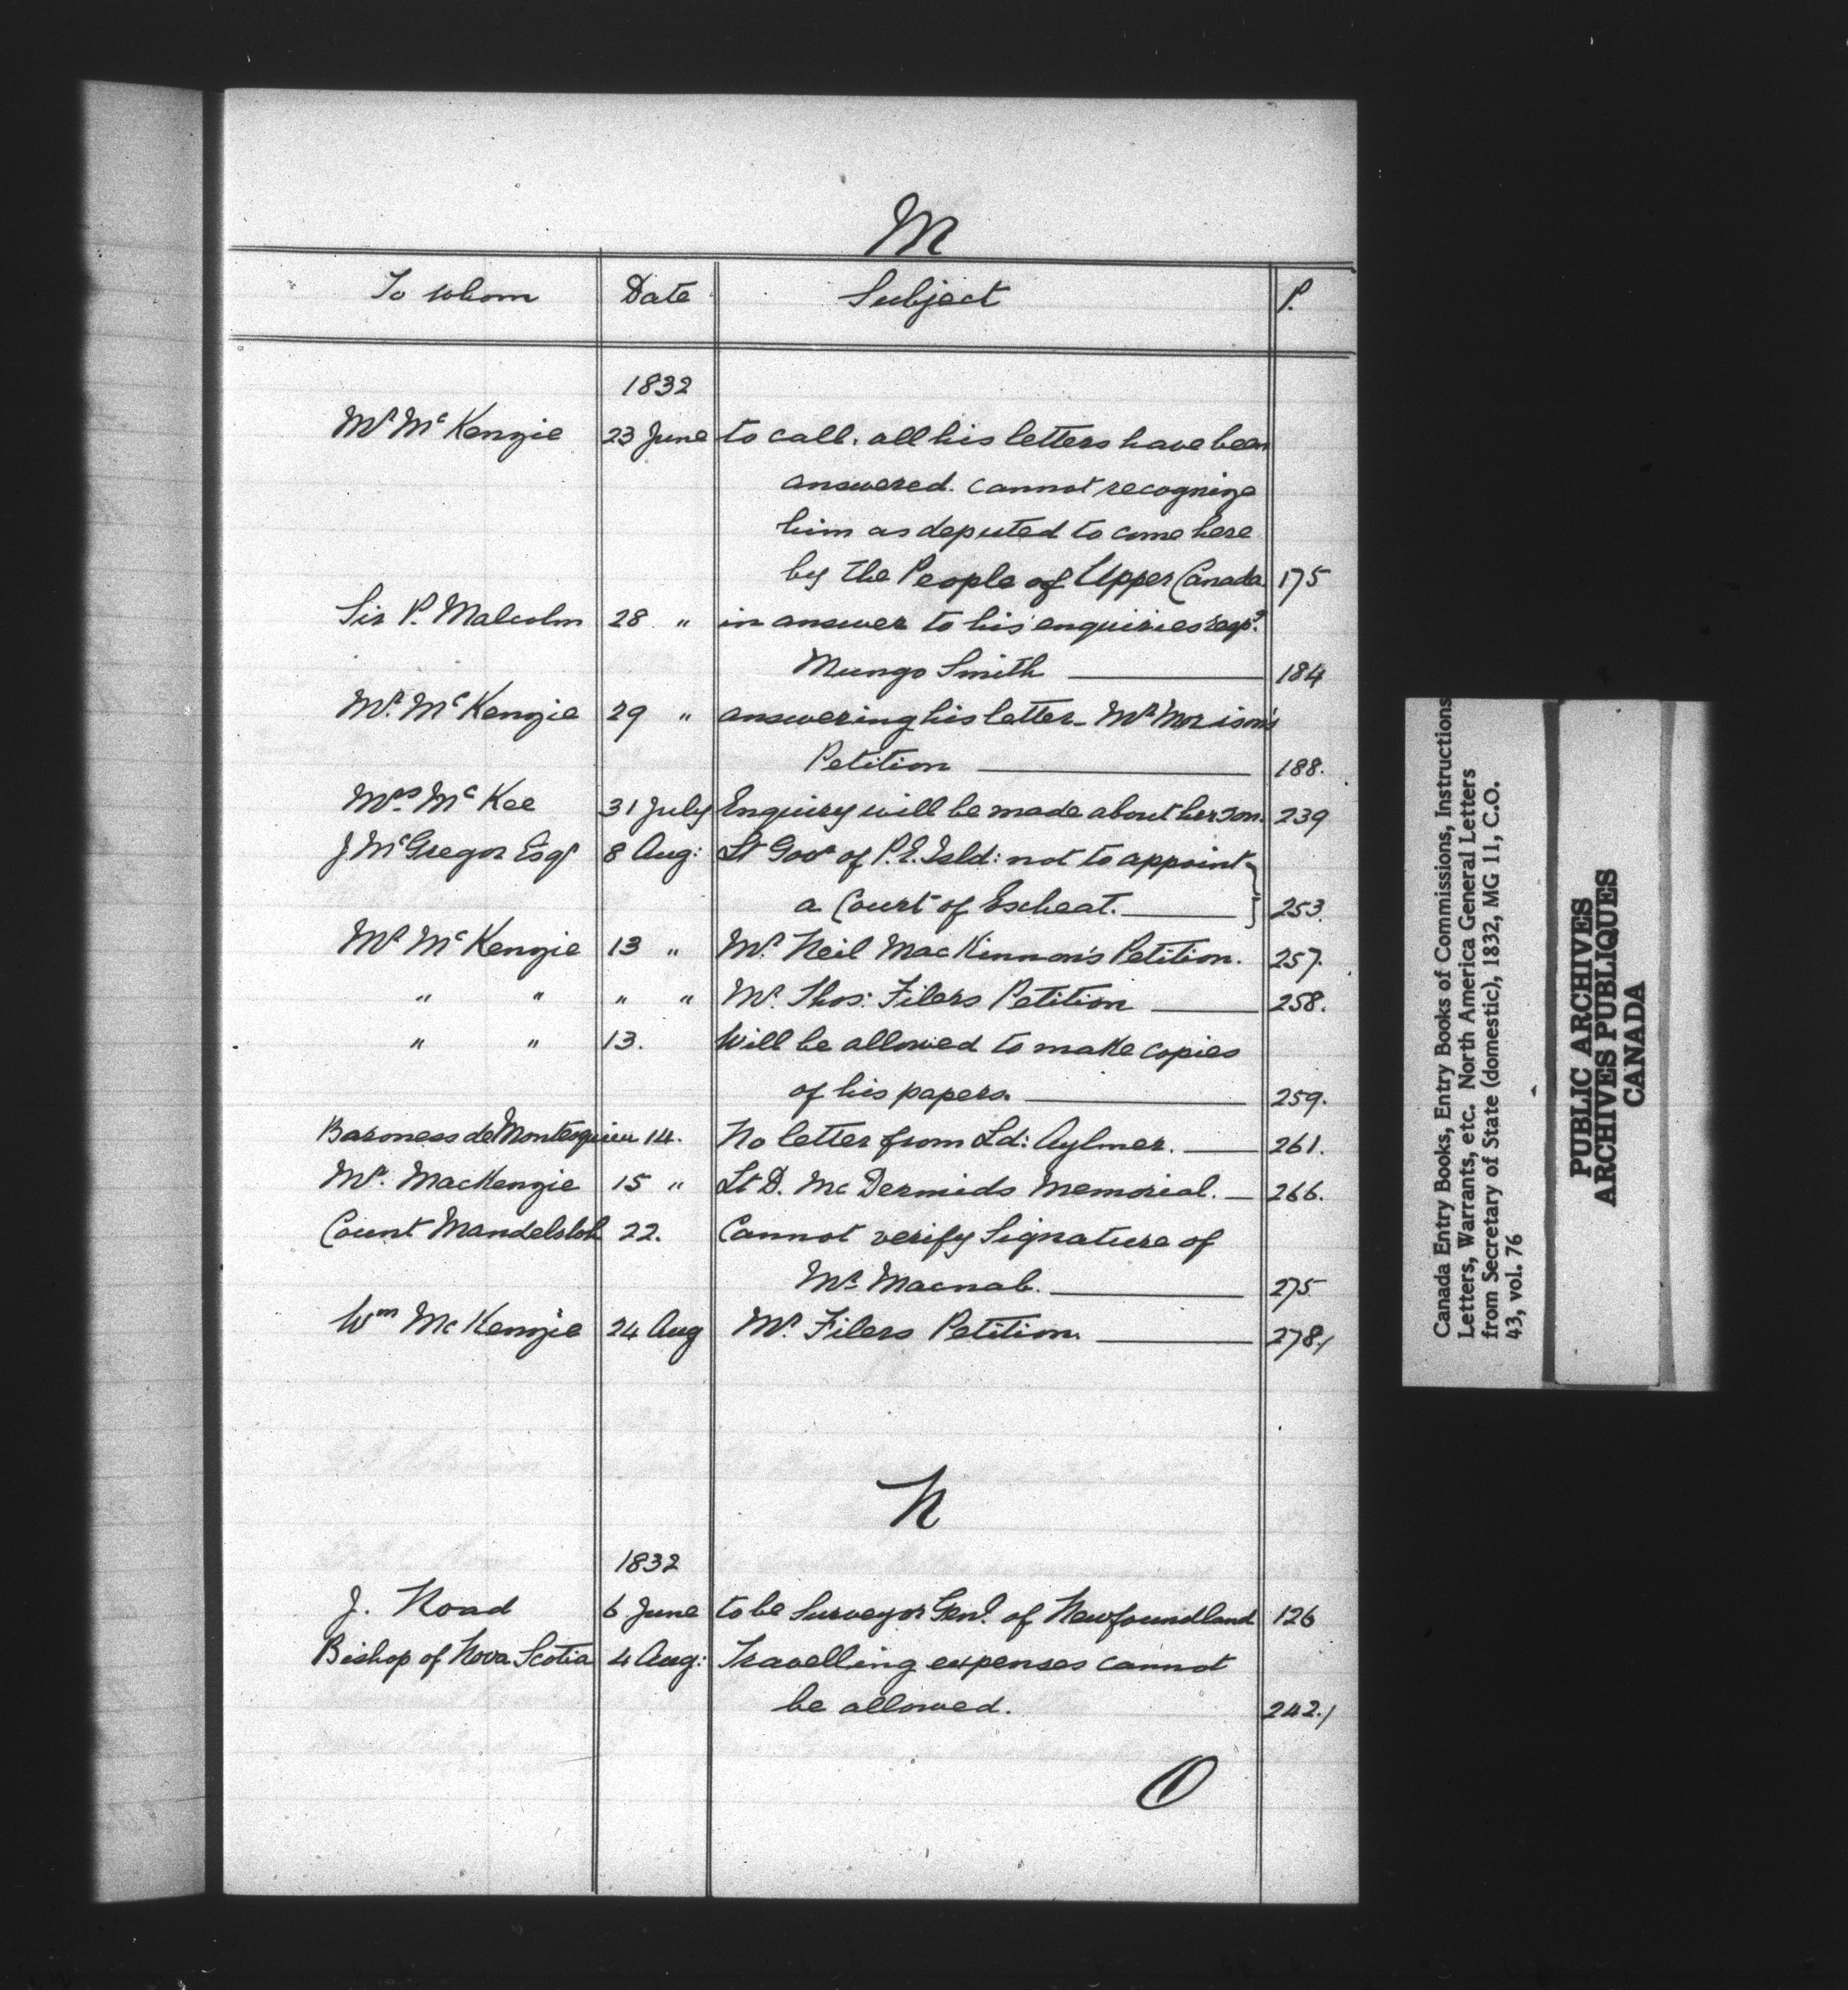 M
To whom Date Subject P.
1832
Mr. McKenzie 23 June to call. all his letters have been
answered. cannot recognize
him as deputed to come here
by the People of Upper Canada 175
Sir P. Malcolm 28 " in answer to his enquiries resp.
Mungo Smith 184
Mr. McKenzie 29 " answering his letter_ Mr Morison's
Petition 188.
Mrs McKee 31 July Enquiry will be made about her son. 239
J McGregor Esqr 8 Aug: Lt Govr of P.E. Isld: not to appoint
a Court of Escheat. 253.
Mr McKenzie 13 " Mr. Neil MacKinnon's Petition. 257.
" " " " Mr. Thos: Filers Petition 258.
" " 13. Will be allowed to make copies
of his papers. 259.
Baroness de Montesquieu 14. No letter from Ld: Aylmer. 261.
Mr. MacKenzie 15 " Lt D. McDermids Memorial. 266.
Count Mandelsloh 22. Cannot verify Signature of
Mr. Macnab. 275
Wm McKenzie 24 Aug Mr. Filers Petition. 278./
N
1832
J. Noad 6 June to be Surveyor Genl. of Newfoundland 126
Bishop of Nova Scotia 4 Aug: Travelling expenses cannot
be allowed. 242./
O
Canada Entry Books, Entry Books of Commissions, Instructions
Letters, Warrants, etc. North America General Letters
from Secretary of State (domestic), 1832, MG 11, C.O.
43, vol. 76
PUBLIC ARCHIVES
ARCHIVES PUBLIQUES
CANADA